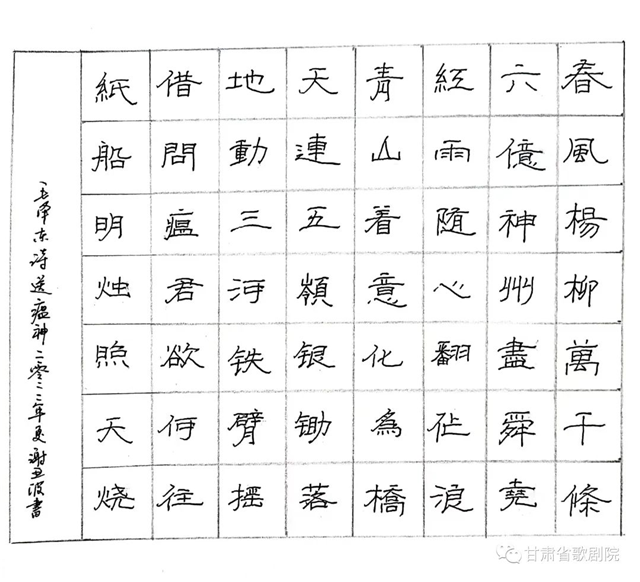 春風楊柳萬千條
六億神州盡舜堯
紅雨随心翻作浪
青山着意化為橋
天連五嶺银锄落
地動三河铁臂摇
借問瘟君欲何往
紙船明烛照天烧
毛泽东诗送瘟神二零二二年夏谢書
甘肃省歌剧院